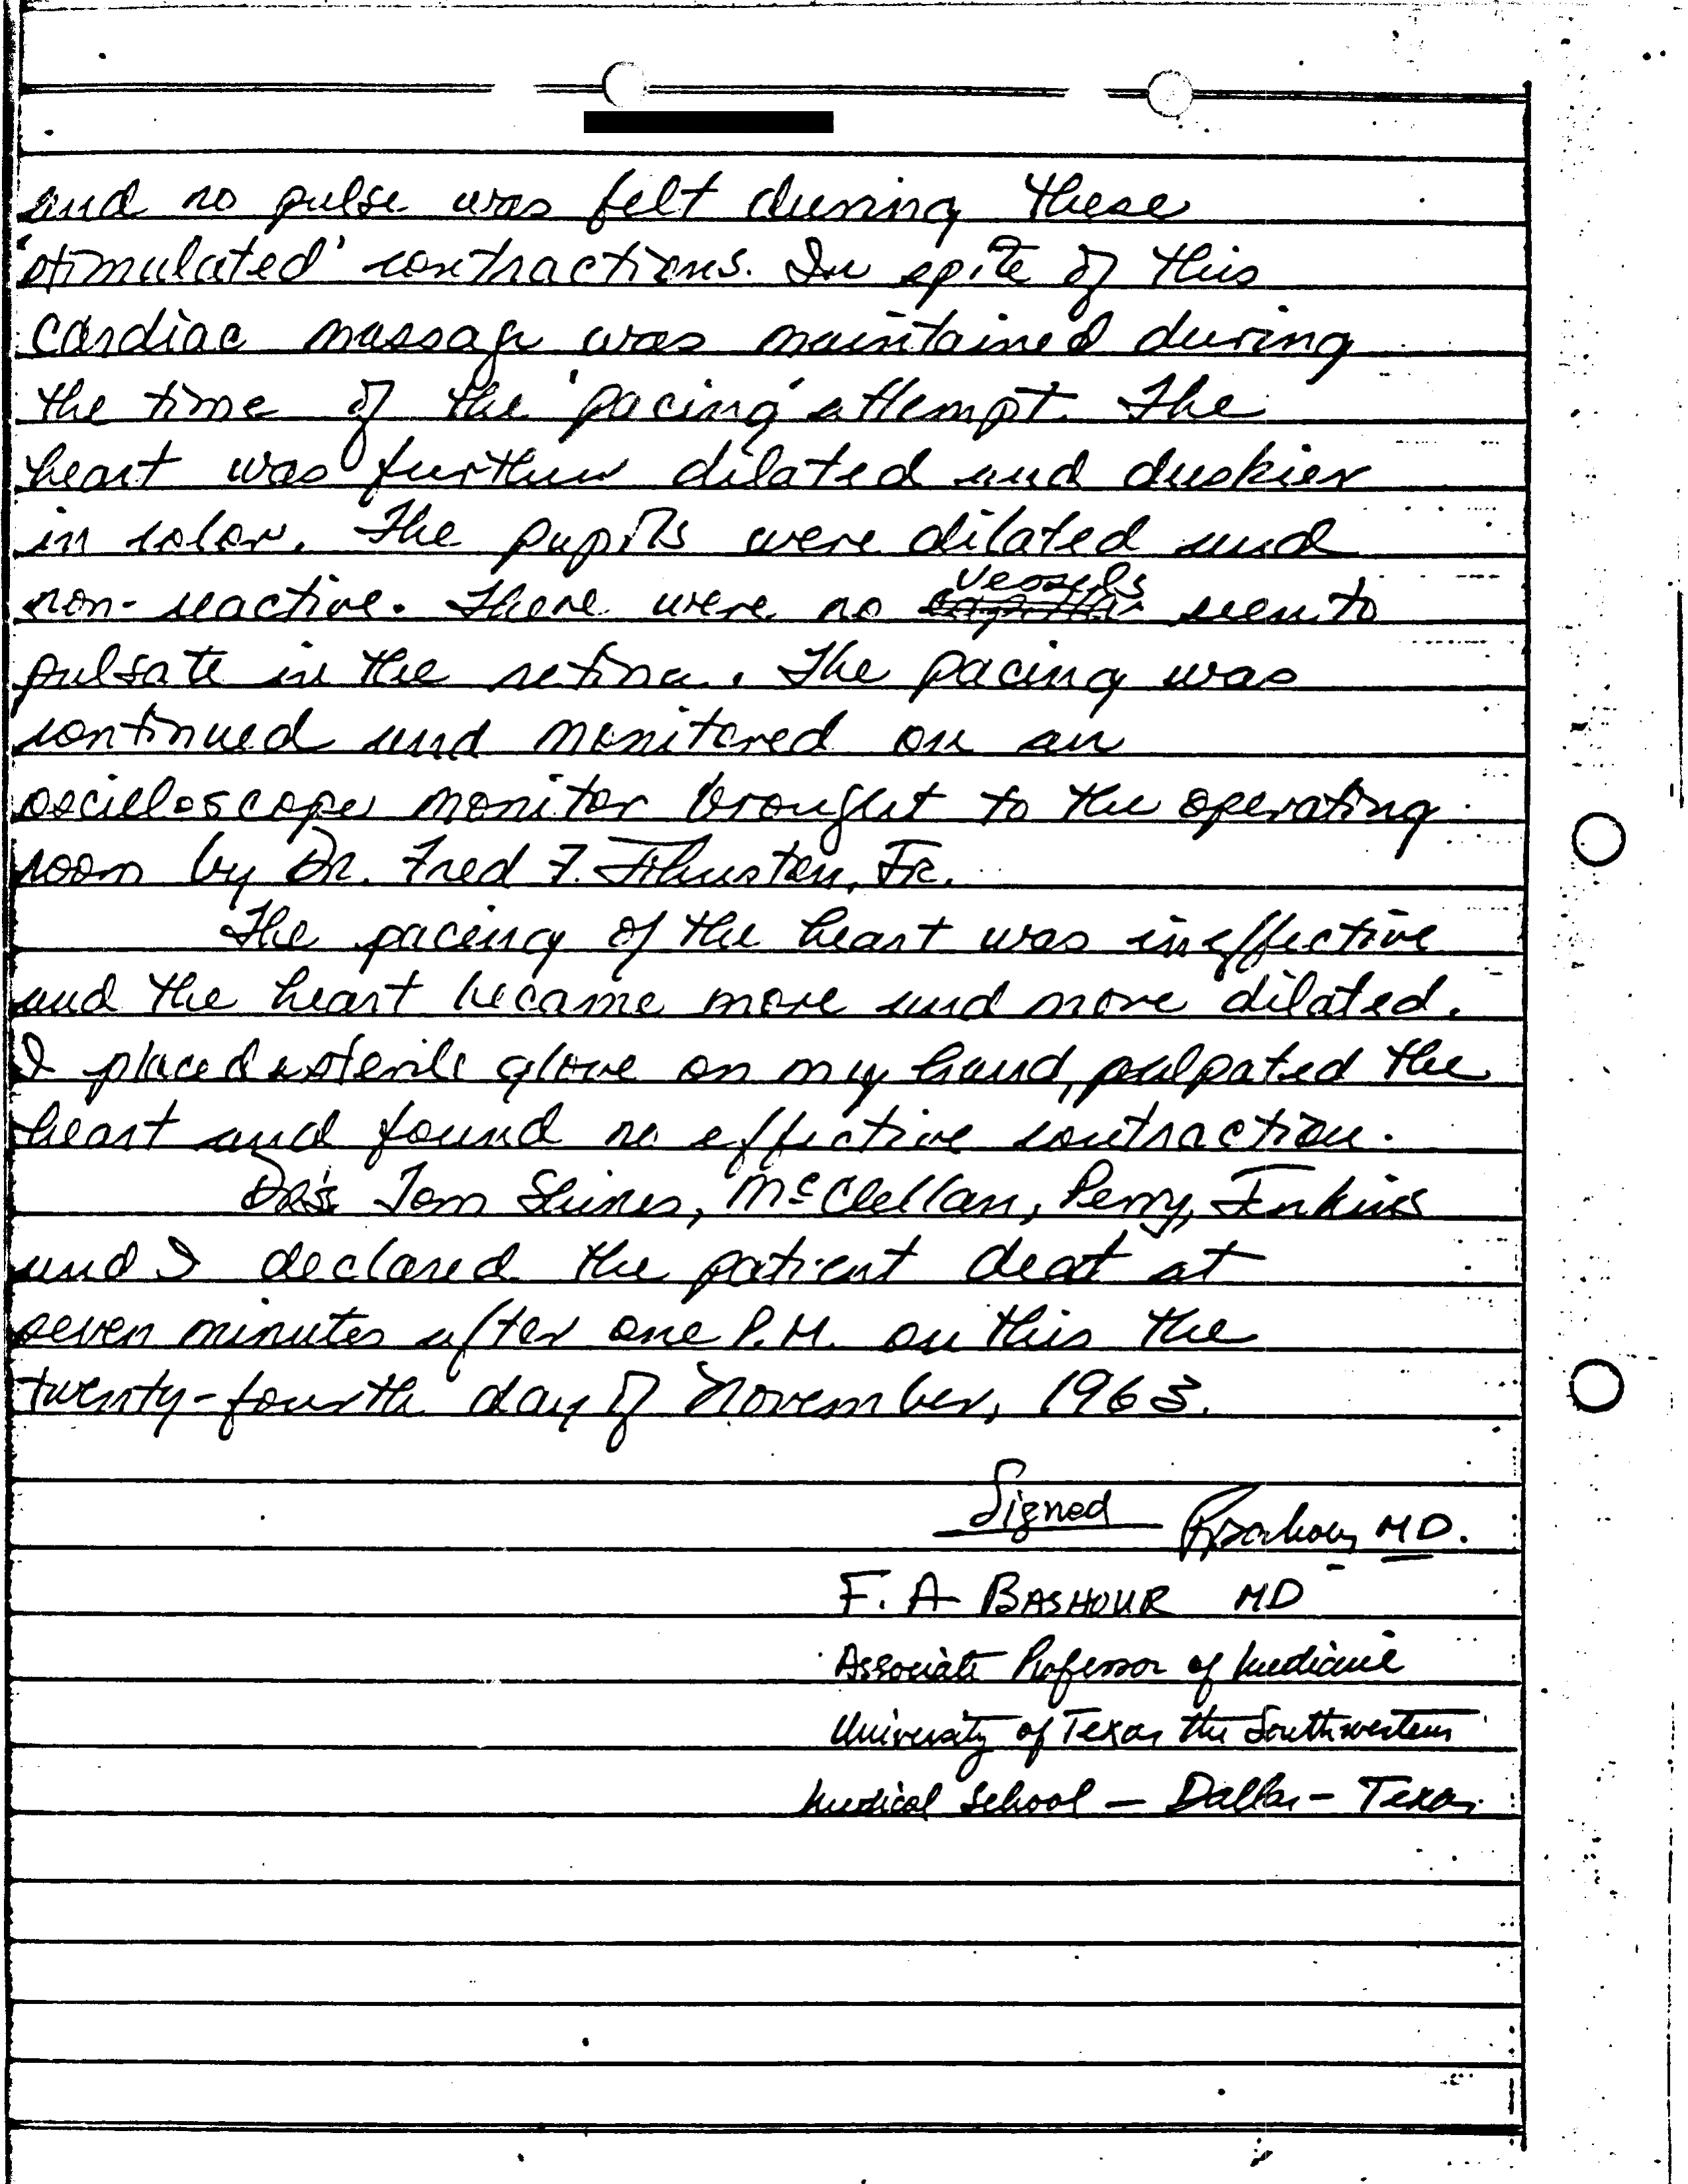 and no pulse was felt during these
'stimulated' contractions. In spite of this
cardiac massage was maintained during
the time of the 'pacing' attempt. The
heart was further dilated and duskier
in color. The pupils were dilated and
non-reactive. There were no vessels seen to
pulsate in the retina. The pacing was
continued and monitored on an
oscilloscope monitor brought to the operating
room by Dr. Fred F. Johnston, Jr.
The pacing of the heart was ineffective
and the heart became more and more dilated.
I placed a sterile glove on my hand, palpated the
heart and found no effective contraction.
Drs. Tom Shires, McClellan, Perry, Jenkins
and I declared the patient deat at
seven minutes after one P.M. on this the
twenty-fourth day of November, 1963.
Signed Bashour, MD.
F. A BASHOUR MD
Associate Professor of Medicine
University of Texas the Southwestern
Medical School — Dallas – Texas